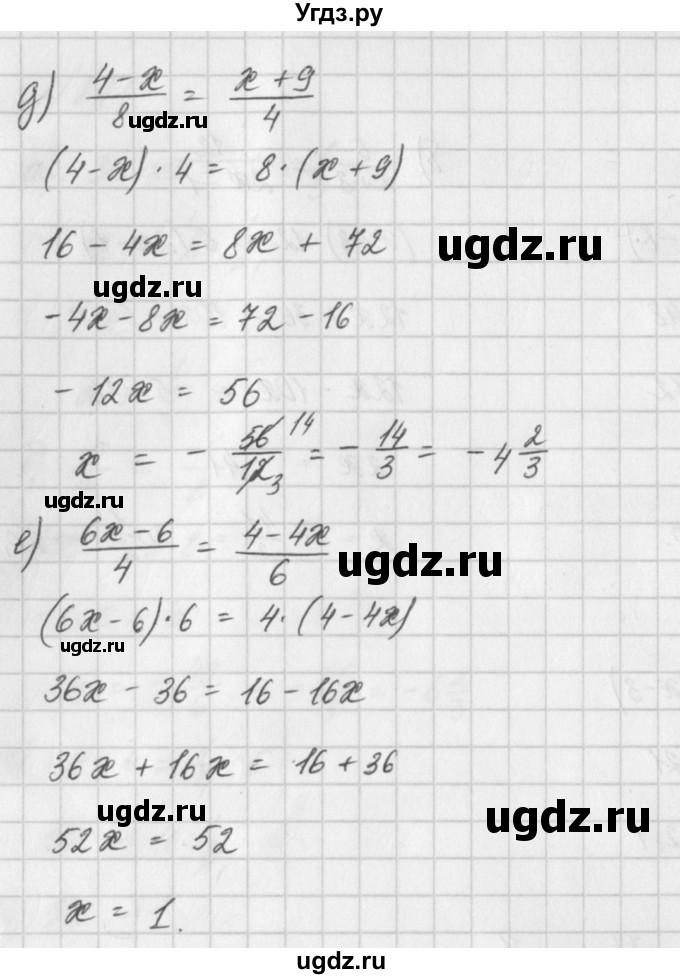 Угдз.ру
д) (4-x)/8 = (x+9)/4
ugdz.ru
(4-x)·4 = 8·(x+9)
16 - 4x = 8x + 72
ugdz.ru
ugdz.ru
-4x - 8x = 72 - 16
- 12x = 56
x = - 56/12 14 3 = - 14/3 = - 4 2/3
ugdz.ru
е) (6x-6)/4 = (4-4x)/6
ugdz.ru
(6x-6)·6 = 4·(4-4x)
ugdz.ru
36x - 36 = 16 - 16x
36x + 16x = 16 + 36
ugdz.ru
ugdz.ru
52x = 52
x = 1.
ugdz.ru